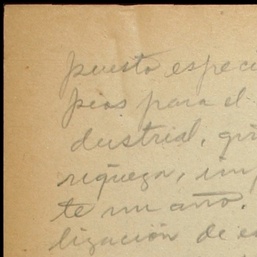 puesto especi
peos para el
dustrial, gra
riqueza, imp
te un año.
lización de es